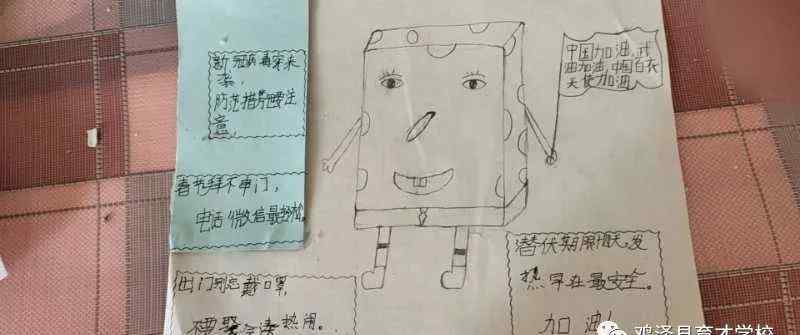 新冠病毒突来
袭，
防范措势要注
意。
春节拜不串门，
电话微信最轻松。
中国加油，武
油加油，中国白衣
天使加油
出门别忘戴口罩，
要聚 凑热闹。
潜伏期限 天，发
热早在最安全。
加油
鸡泽县育才学校